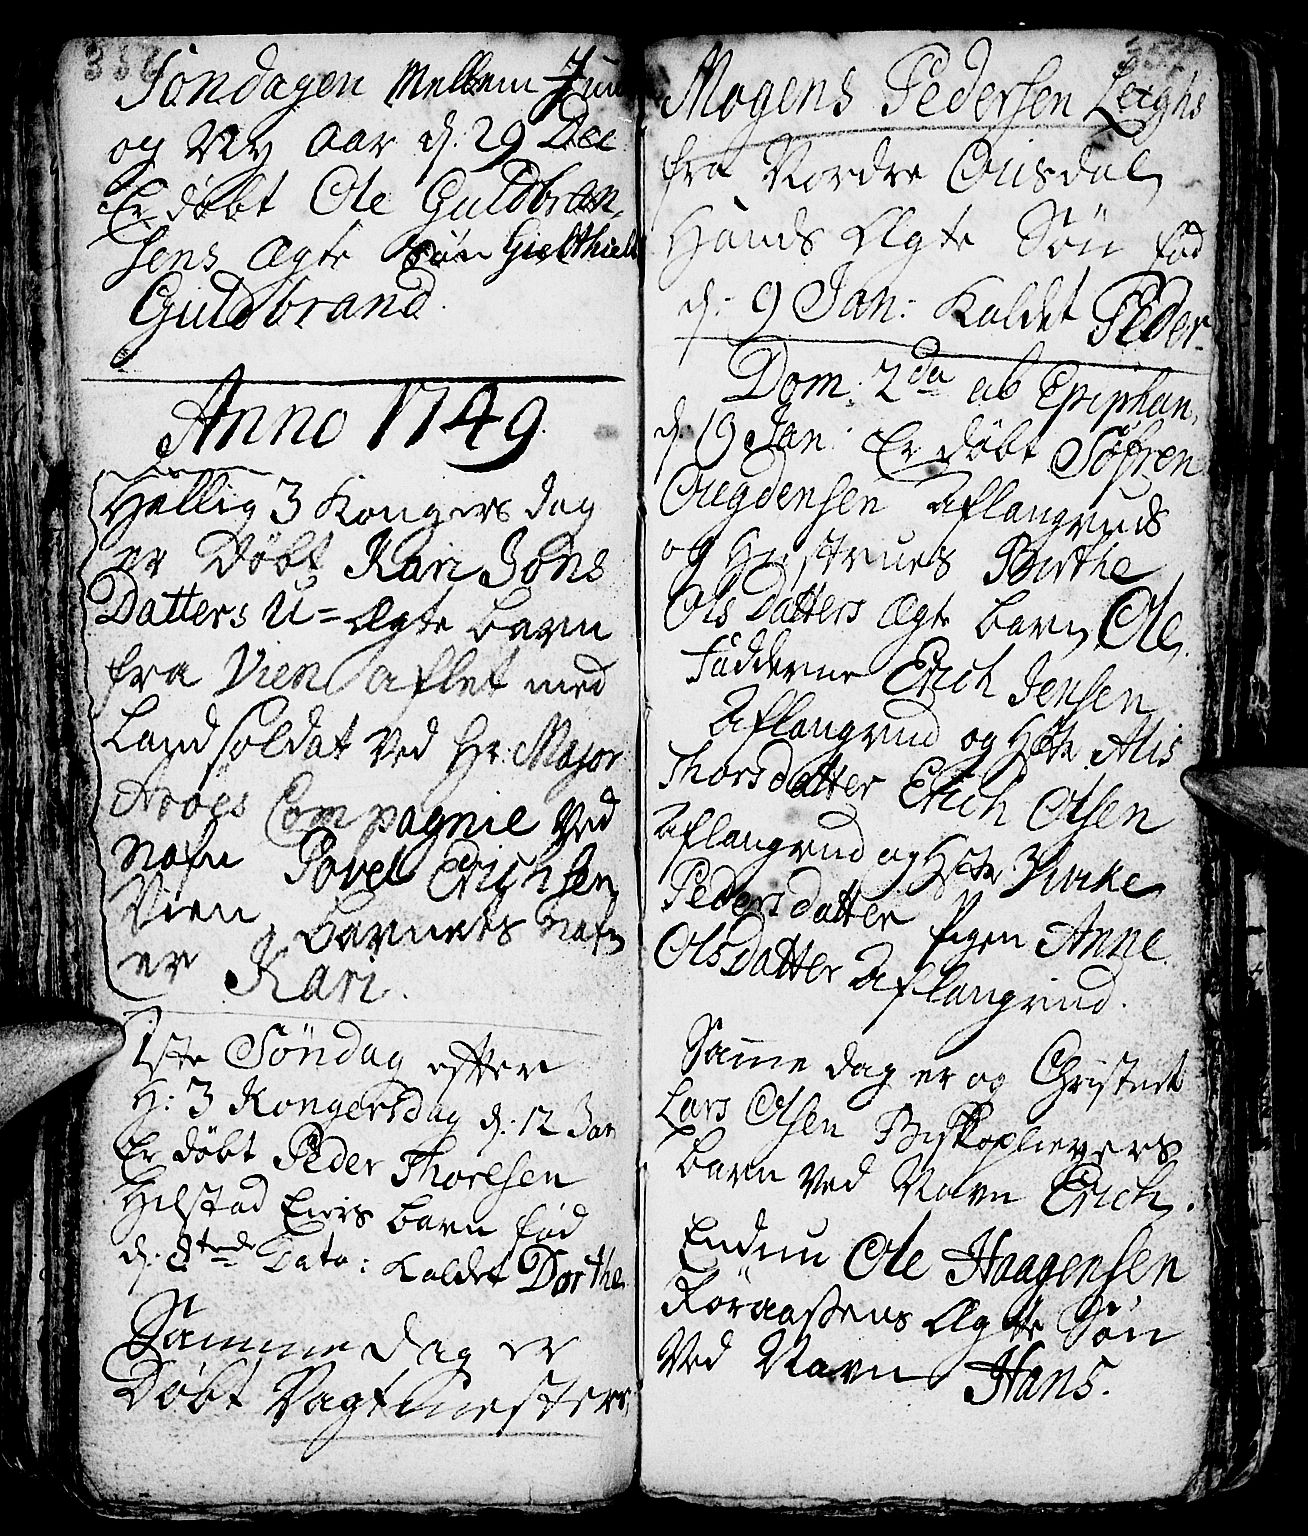 Söndagen Mellem Juul
og Ny Aar d. 29 Dec
Er döbt Ole Guldbran,
sens Ægte Sön
Guldbrand.
Anno 1749.
Hellig 3 Kongers dag
er Döbt Kari Jons
Datters U=Ægte barn
fra Vien aflet med
Landsoldat ved Hr: Major
Compagnie ved
Nafn Povel Erichsen
Vien barnets nafn
er Kari.
1ste Söndag efter
H: 3 Kongersdag d. 12 Jan
Er döbt Peder Thoresen
Hilstad Eiers barn föd
d. 8tende Dato: Kaldet Dorthe
Samme dag er
Döbt Vagtmesters
354
Mogens Pedersen Leighs
fra Nordre Ousdal
Hands Ægte Sön föd
d: 9 Jan: Kaldet Peder.
Dom: 2da ab Epiphan.
d. 19 Jan: Er döbt Söfren
Ougdensen Aflangruds
og Hustrues Birthe
Ols Datters Ægte barn, Ole.
Fadderne Erich Jensen
Aflangrud og Hste Alis
Thorsdatter Erich Olsen
Aflangrud og Hste Kirke
Pedersdatter Pigen Anne
OlsDatter Aflangrud.
Samme dag er og Christnet
Lars Olsen Biskoplievers
barn ved Navn Erich.
Endnu Ole Haagensen
Röraasens Ægte Sön
Ved Navn Hans.